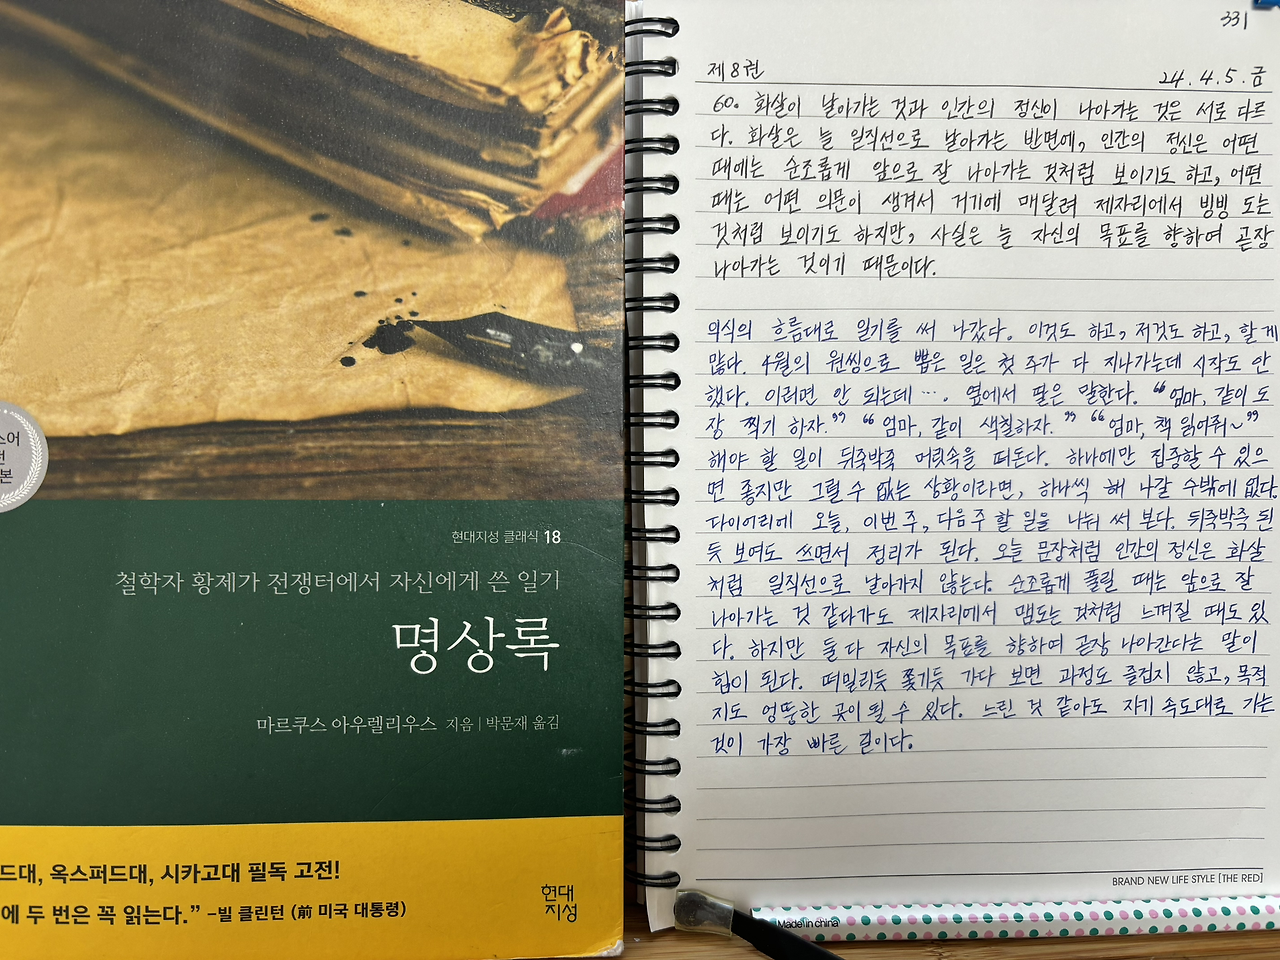 스어
전
본
현대지성 클래식 18
철학자 황제가 전쟁터에서 자신에게 쓴 일기
명상록
마르쿠스 아우렐리우스 지음 | 박문재 옮김
드대, 옥스퍼드대, 시카고대 필독 고전!
에 두 번은 꼭 읽는다.” –빌 클린턴 (前 미국 대통령)
현대
지성
331
제8권
24. 4. 5. 금
60. 화살이 날아가는 것과 인간의 정신이 나아가는 것은 서로 다르
다. 화살은 늘 일직선으로 날아가는 반면에, 인간의 정신은 어떤
때에는 순조롭게 앞으로 잘 나아가는 것처럼 보이기도 하고, 어떤
때는 어떤 의문이 생겨서 거기에 매달려 제자리에서 빙빙 도는
것처럼 보이기도 하지만, 사실은 늘 자신의 목표를 향하여 곧장
나아가는 것이기 때문이다.
의식의 흐름대로 일기를 써 나갔다. 이것도 하고, 저것도 하고, 할 게
많다. 4월의 원씽으로 뽑은 일은 첫 주가 다 지나가는데 시작도 안
했다. 이러면 안 되는데 …. 옆에서 딸은 말한다. “엄마, 같이 도
장 찍기 하자.” “엄마, 같이 색칠하자.” “엄마, 책 읽어줘~”
해야 할 일이 뒤죽박죽 머릿속을 떠돈다. 하나에만 집중할 수 있으
면 좋지만 그럴 수 없는 상황이라면, 하나씩 해 나갈 수밖에 없다.
다이어리에 오늘, 이번 주, 다음 주 할 일을 나눠 써 본다. 뒤죽박죽 된
듯 보여도 쓰면서 정리가 된다. 오늘 문장처럼 인간의 정신은 화살
처럼 일직선으로 날아가지 않는다. 순조롭게 풀릴 때는 앞으로 잘
나아가는 것 같다가도 제자리에서 맴도는 것처럼 느껴질 때도 있
다. 하지만 둘 다 자신의 목표를 향하여 곧장 나아간다는 말이
힘이 된다. 떠밀리듯 쫓기듯 가다 보면 과정도 즐겁지 않고, 목적
지도 엉뚱한 곳이 될 수 있다. 느린 것 같아도 자기 속도대로 가는
것이 가장 빠른 길이다.
BRAND NEW LIFE STYLE [THE RED]
Made in china